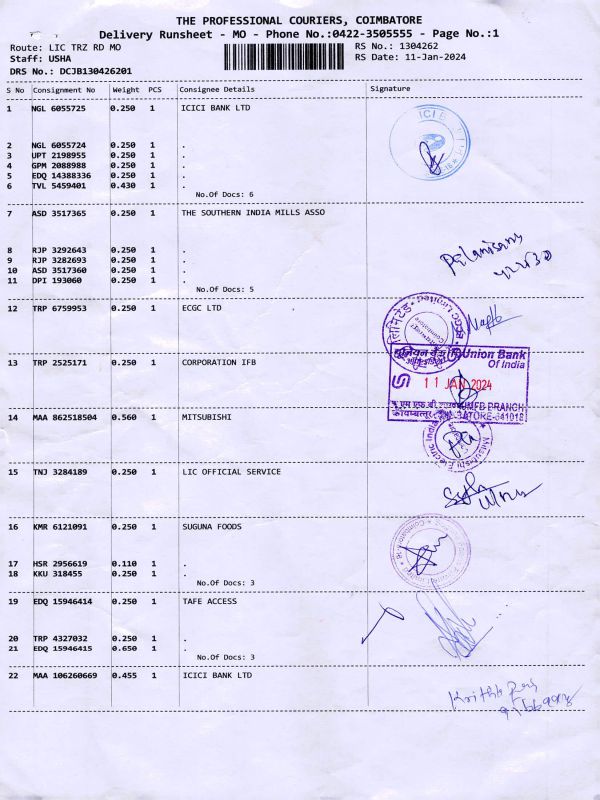 THE PROFESSIONAL COURIERS, COIMBATORE
Delivery Runsheet - MO - Phone No.:0422-3505555 - Page No.:1
Route: LIC TRZ RD MO
RS No.: 1304262
Staff: USHA
RS Date: 11-Jan-2024
DRS No.: DCJB130426201
S No Consignment No Weight PCS Consignee Details Signature
1 NGL 6055725 0.250 1 ICICI BANK LTD
2 NGL 6055724 0.250 1 .
3 UPT 2198955 0.250 1 .
4 GPM 2088988 0.250 1 .
5 EDQ 14388336 0.250 1 .
6 TVL 5459401 0.430 1 .
No.Of Docs: 6
7 ASD 3517365 0.250 1 THE SOUTHERN INDIA MILLS ASSO
8 RJP 3292643 0.250 1 .
9 RJP 3282693 0.250 1 .
10 ASD 3517360 0.250 1 .
11 DPI 193060 0.250 1 .
No.Of Docs: 5
Palanisamy
12 TRP 6759953 0.250 1 ECGC LTD
लिमिटेड
Limited
13 TRP 2525171 0.250 1 CORPORATION IFB
यूनियन बैंक Union Bank
Of India
11 JAN 2024
BRANCH
कोयम्बत्तूर
14 MAA 862518504 0.560 1 MITSUBISHI
Mitsubishi Electric India
15 TNJ 3284189 0.250 1 LIC OFFICIAL SERVICE
16 KMR 6121091 0.250 1 SUGUNA FOODS
17 HSR 2956619 0.110 1 .
18 KKU 318455 0.250 1 .
No.Of Docs: 3
19 EDQ 15946414 0.250 1 TAFE ACCESS
20 TRP 4327032 0.250 1 .
21 EDQ 15946415 0.650 1 .
No.Of Docs: 3
22 MAA 106260669 0.455 1 ICICI BANK LTD